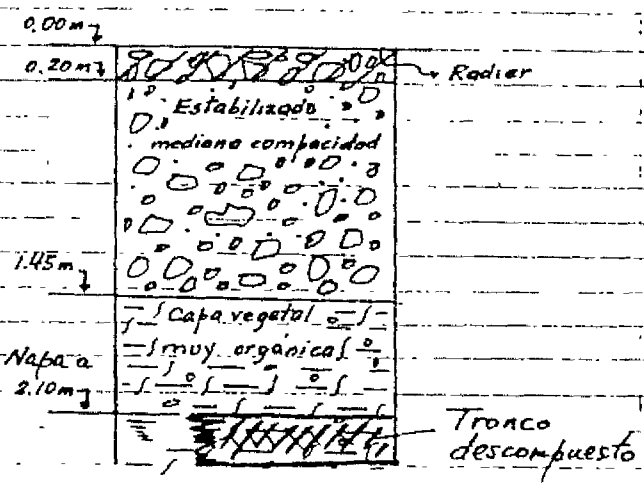 0,00 m
0.20 m
Radier
Estabilizado
mediana compacidad
1.45 m
Capa vegetal
muy orgánica
Napa a
2.10 m
Tronco
descompuesto